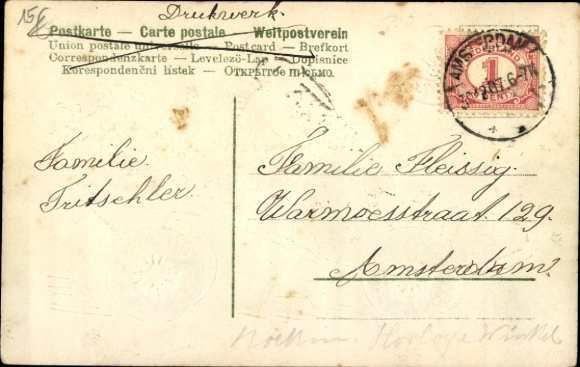 15
Drukwerk.
Postkarte — Carte postale — Weltpostverein
Union postale universelle — Postcard — Brefkort
Correspondenzkarte — Levelező-Lap — Dopisnice
Korespondenční listek — Открытое письмо.
AMSTERDAM
NEDERLAND
1
CENT
Familie
Fritschler.
Familie Fleissig.
Warmoesstraat 129.
Amsterdam.
Horloge Winkel